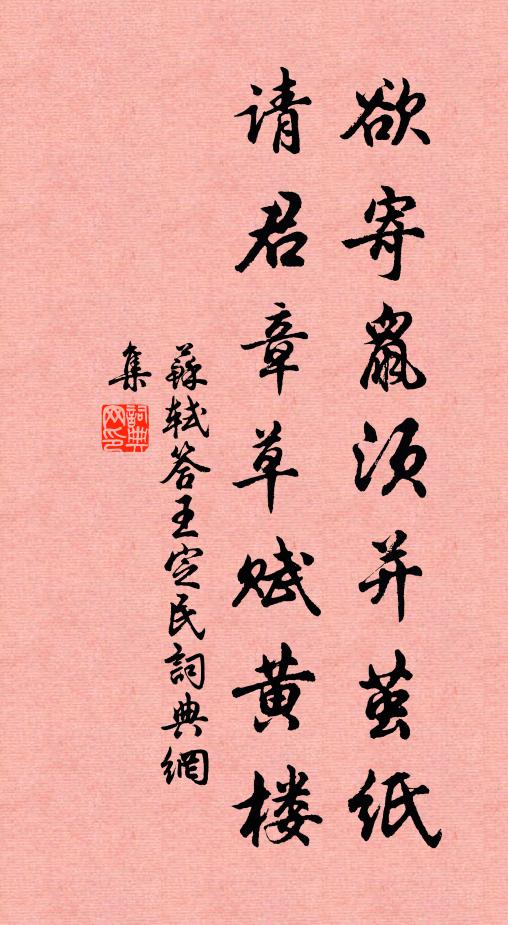 欲寄鼠须并茧纸
请君章草赋黄楼
蘇轼答王定民詞典網
集
詞典
网印